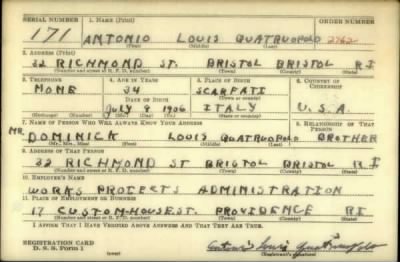 SERIAL NUMBER 1. NAME (Print) ORDER NUMBER
171 ANTONIO LOUIS QUATRUOPOLO 2762
(First) (Middle) (Last)
2. ADDRESS (Print)
32 RICHMOND ST. BRISTOL BRISTOL R I
(Number and street or R. F. D. number) (Town) (County) (State)
3. TELEPHONE 4. AGE IN YEARS 5. PLACE OF BIRTH 6. COUNTRY OF CITIZENSHIP
NONE 34 SCARFATI
DATE OF BIRTH (Town or county)
JULY 9 1906 ITALY U.S.A.
(Exchange) (Number) (Mo.) (Day) (Yr.) (State or country)
7. NAME OF PERSON WHO WILL ALWAYS KNOW YOUR ADDRESS 8. RELATIONSHIP OF THAT PERSON
MR. DOMINICK LOUIS QUATRUOPOLO BROTHER
(Mr., Mrs., Miss) (First) (Middle) (Last)
9. ADDRESS OF THAT PERSON
32 RICHMOND ST BRISTOL BRISTOL R I
(Number and street or R. F. D. number) (Town) (County) (State)
10. EMPLOYER'S NAME
WORKS PROTECTS ADMINISTRATION
11. PLACE OF EMPLOYMENT OR BUSINESS
17 CUSTOM-HOUSE ST. PROVIDENCE RI
(Number and street or R. F. D. number) (Town) (County) (State)
I AFFIRM THAT I HAVE VERIFIED ABOVE ANSWERS AND THAT THEY ARE TRUE.
REGISTRATION CARD
D. S. S. Form 1 (over) (Registrant's signature)
Antonio Louis